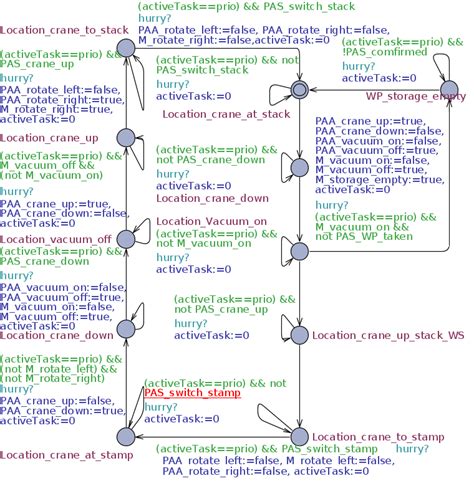 (activeTask==prio) && PAS_switch_stack
hurry?
PAA_rotate_left:=false, PAA_rotate_right:=false,
M_rotate_right:=false,activeTask:=0
Location_crane_to_stack
(activeTask==prio) &&
PAS_crane_up
hurry?
PAA_rotate_left:=false,
PAA_rotate_right:=true,
M_rotate_right:=true,
activeTask:=0
(activeTask==prio) && not
PAS_switch_stack
hurry?
activeTask:=0
(activeTask==prio) &&
!PAS_comfirmed
hurry?
activeTask:=0
WP_storage_empty
Location_crane_at_stack
Location_crane_up
(activeTask==prio) &&
M_vacuum_off &&
(not M_vacuum_on)
hurry?
PAA_crane_up:=true,
PAA_crane_down:=false,
activeTask:=0
(activeTask==prio) &&
not PAS_crane_down
hurry?
activeTask:=0
Location_crane_down
PAA_crane_up:=true,
PAA_crane_down:=false,
PAA_vacuum_on:=false,
PAA_vacuum_off:=true,
M_vacuum_on:=false,
M_vacuum_off:=true,
M_storage_empty:=true,
activeTask:=0
hurry?
(activeTask==prio) &&
M_vacuum_on &&
not PAS_WP_taken
Location_Vacuum_on
(activeTask==prio) &&
not M_vacuum_on
hurry?
activeTask:=0
Location_vacuum_off
(activeTask==prio) &&
PAS_crane_down
hurry?
PAA_vacuum_on:=false,
PAA_vacuum_off:=true,
M_vacuum_off:=true,
M_vacuum_on:=false,
activeTask:=0
(activeTask==prio) &&
not PAS_crane_up
hurry?
activeTask:=0
Location_crane_down
Location_crane_up_stack_WS
(activeTask==prio) &&
(not M_rotate_left) &&
(not M_rotate_right)
hurry?
PAA_crane_up:=false,
PAA_crane_down:=true,
activeTask:=0
(activeTask==prio) && not
PAS_switch_stamp
hurry?
activeTask:=0
Location_crane_to_stamp
Location_crane_at_stamp
(activeTask==prio) && PAS_switch_stamp hurry?
PAA_rotate_left:=false, M_rotate_left:=false,
PAA_rotate_right:=false, activeTask:=0